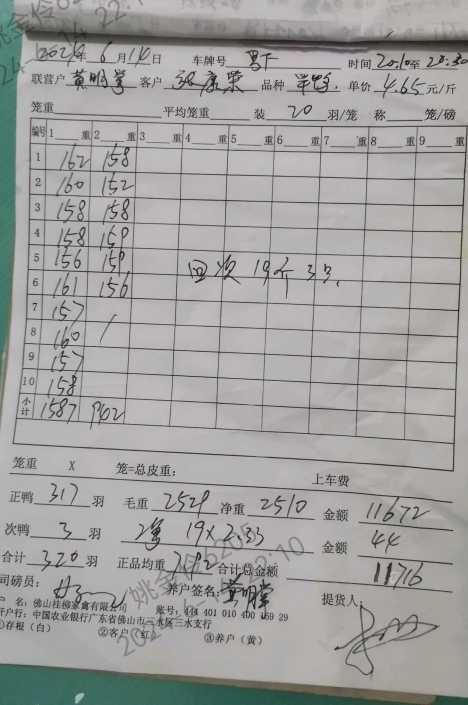 2024年 6月14日 车牌号 时间 20:10至 20:30
联营户 黄明堂 客户 张康荣 品种 单价 4.65 元/斤
笼重 平均笼重 装 20 羽/笼 称 笼/磅
编号 1 重 2 重 3 重 4 重 5 重 6 重 7 重 8 重 9 重
1 162 158
2 160 152
3 158 158
4 158 159
5 156 159 回次 19斤 3只
6 161 156
7 157
8 160 /
9 157
10 158
小计 1587 942
笼重 X 笼=总皮重: 上车费
正鸭 317 羽 毛重 2529 净重 2510 金额 11672
次鸭 3 羽 19×2.33 金额 44
合计 320 羽 正品均重 7.92 合计总金额 11716
司磅员: 养户签名: 黄明堂 提货人:
户 名: 佛山桂柳家禽有限公司 账号: 444 401 010 400 159 29
开户行: 中国农业银行广东省佛山市三水区三水支行
①存根(白) ②客户(红) ③养户(黄)